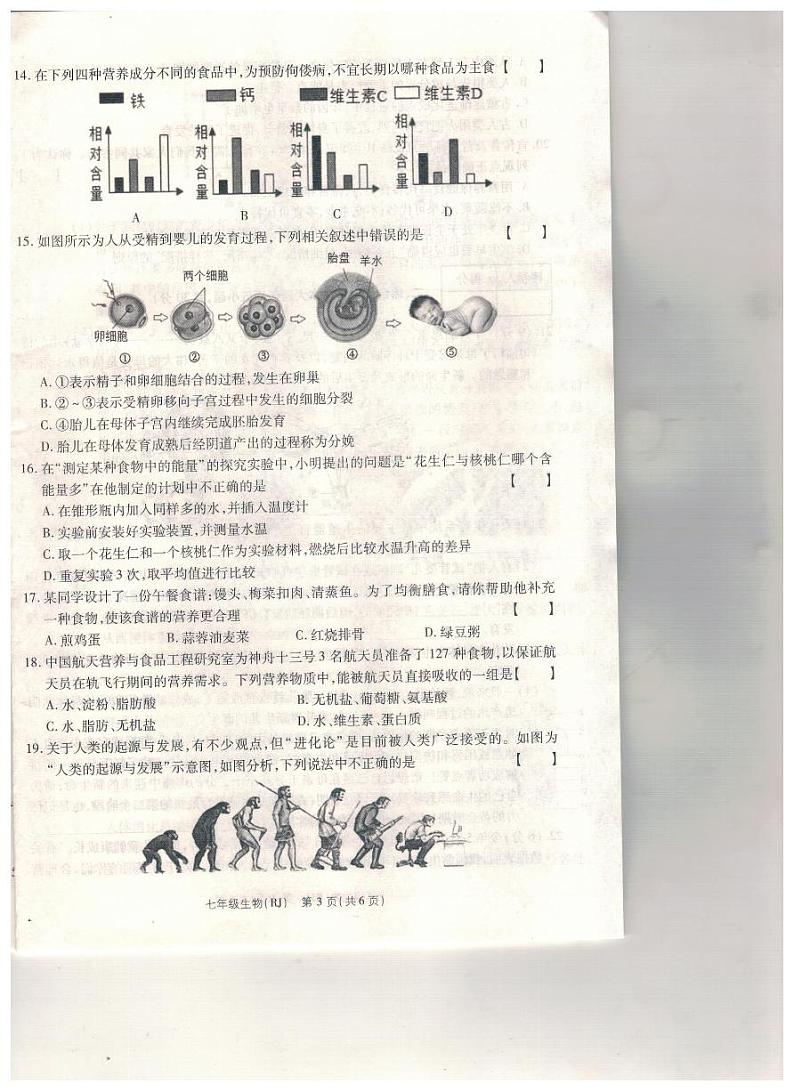 14. 在下列四种营养成分不同的食品中,为预防佝偻病,不宜长期以哪种食品为主食【 】
铁 钙 维生素C 维生素D
相对含量 相对含量 相对含量 相对含量
A B C D
15. 如图所示为人从受精到婴儿的发育过程,下列相关叙述中错误的是 【 】
两个细胞 胎盘 羊水
卵细胞
① ② ③ ④ ⑤
A. ①表示精子和卵细胞结合的过程,发生在卵巢
B. ②~③表示受精卵移向子宫过程中发生的细胞分裂
C. ④胎儿在母体子宫内继续完成胚胎发育
D. 胎儿在母体发育成熟后经阴道产出的过程称为分娩
16. 在“测定某种食物中的能量”的探究实验中,小明提出的问题是“花生仁与核桃仁哪个含
能量多”在他制定的计划中不正确的是 【 】
A. 在锥形瓶内加入同样多的水,并插入温度计
B. 实验前安装好实验装置,并测量水温
C. 取一个花生仁和一个核桃仁作为实验材料,燃烧后比较水温升高的差异
D. 重复实验3次,取平均值进行比较
17. 某同学设计了一份午餐食谱:馒头、梅菜扣肉、清蒸鱼。为了均衡膳食,请你帮助他补充
一种食物,使该食谱的营养更合理 【 】
A. 煎鸡蛋 B. 蒜蓉油麦菜 C. 红烧排骨 D. 绿豆粥
18. 中国航天营养与食品工程研究室为神舟十三号3名航天员准备了127种食物,以保证航
天员在轨飞行期间的营养需求。下列营养物质中,能被航天员直接吸收的一组是【 】
A. 水、淀粉、脂肪酸 B. 无机盐、葡萄糖、氨基酸
C. 水、脂肪、无机盐 D. 水、维生素、蛋白质
19. 关于人类的起源与发展,有不少观点,但“进化论”是目前被人类广泛接受的。如图为
“人类的起源与发展”示意图,如图分析,下列说法中不正确的是 【 】
七年级生物(RJ) 第3页(共6页)